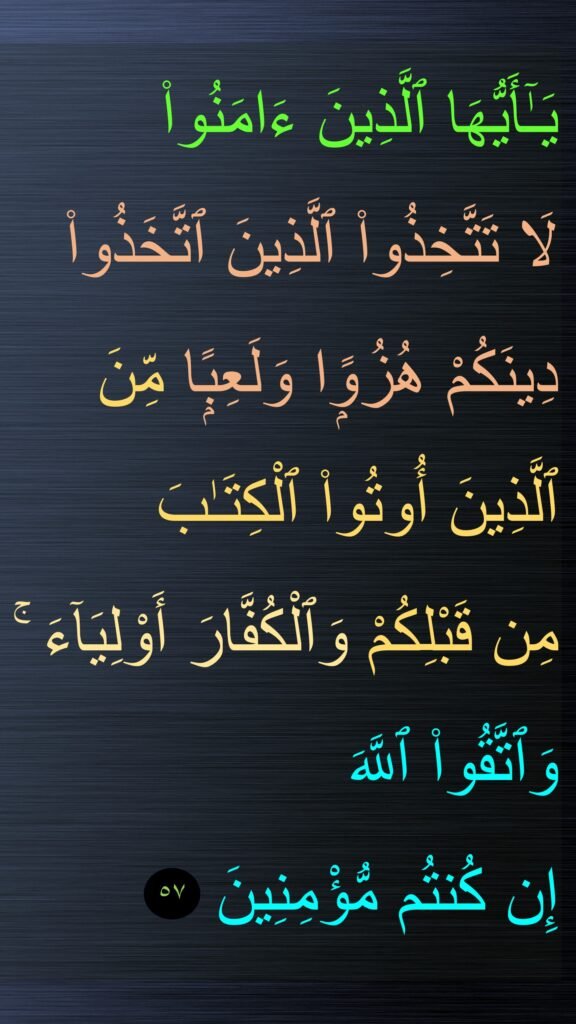 يَـٰٓأَيُّهَا ٱلَّذِينَ ءَامَنُوا۟
لَا تَتَّخِذُوا۟ ٱلَّذِينَ ٱتَّخَذُوا۟
دِينَكُمْ هُزُوًۭا وَلَعِبًۭا مِّنَ
ٱلَّذِينَ أُوتُوا۟ ٱلْكِتَـٰبَ
مِن قَبْلِكُمْ وَٱلْكُفَّارَ أَوْلِيَآءَ ۚ
وَٱتَّقُوا۟ ٱللَّهَ
إِن كُنتُم مُّؤْمِنِينَ ٥٧